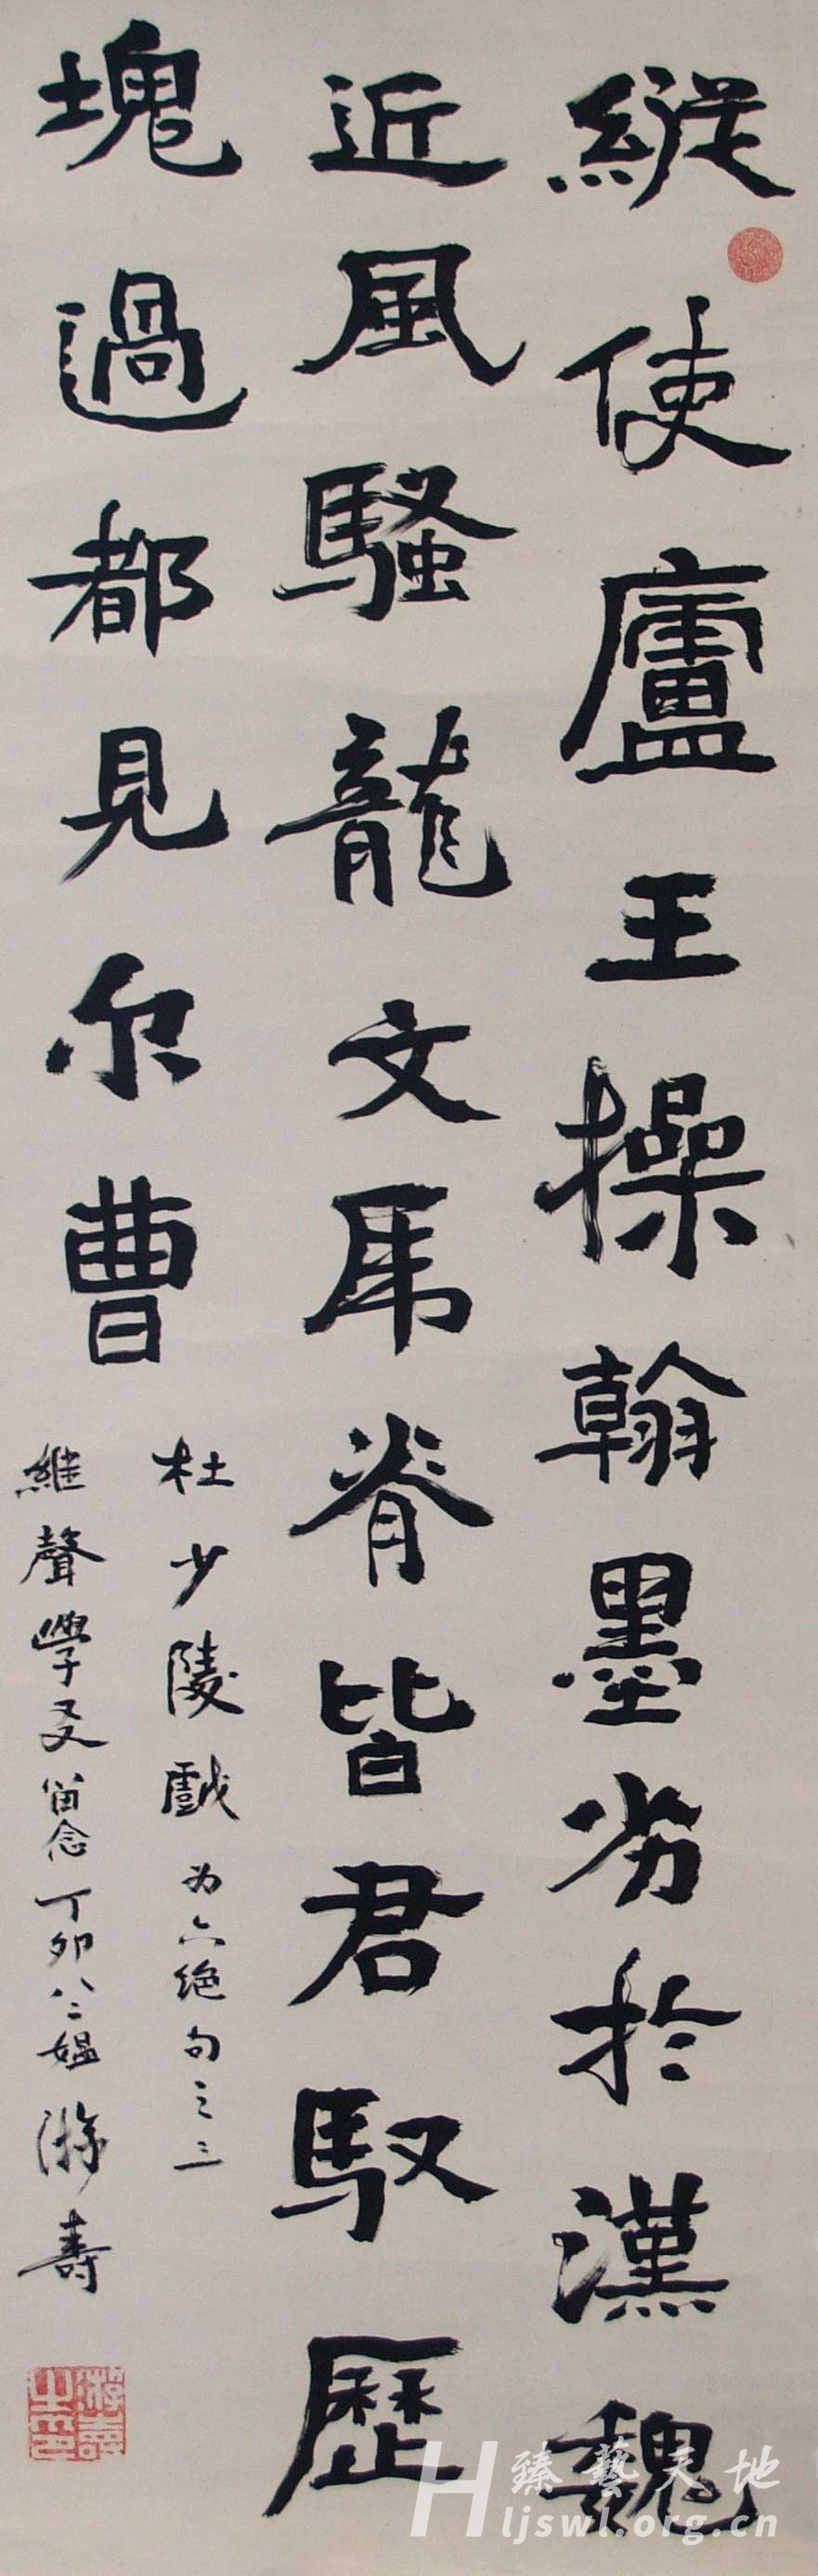 縱使廬王操翰墨劣於漢魏
近風騷龍文虎脊皆君馭歷
塊過都見尔曹
杜少陵戲为六绝句之三
維聲學友留念丁卯八二媪游壽
游壽之印
臻藝天地
Hljswl.org.cn